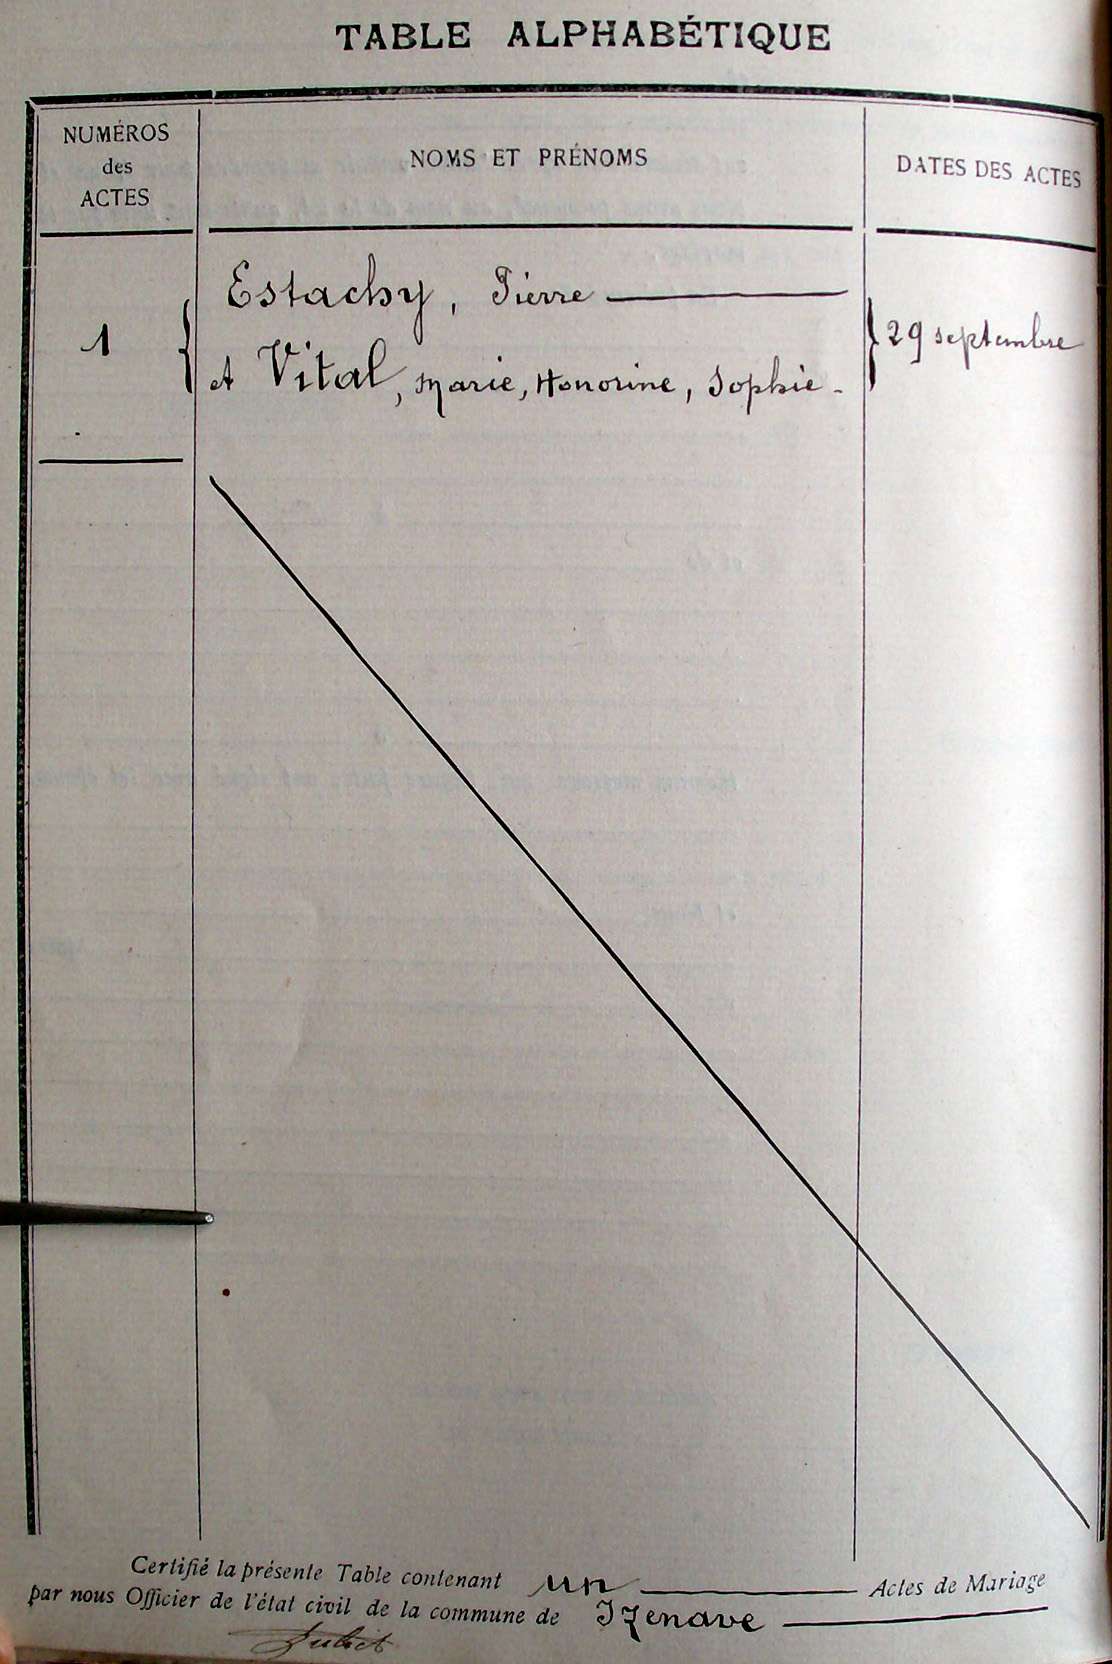 TABLE ALPHABÉTIQUE
NUMÉROS
des
ACTES
NOMS ET PRÉNOMS
DATES DES ACTES
Estachy, Pierre
1
29 septembre
et Vital, Marie, Honorine, Sophie
Certifié la présente Table contenant un Actes de Mariage
par nous Officier de l'état civil de la commune de Izenave